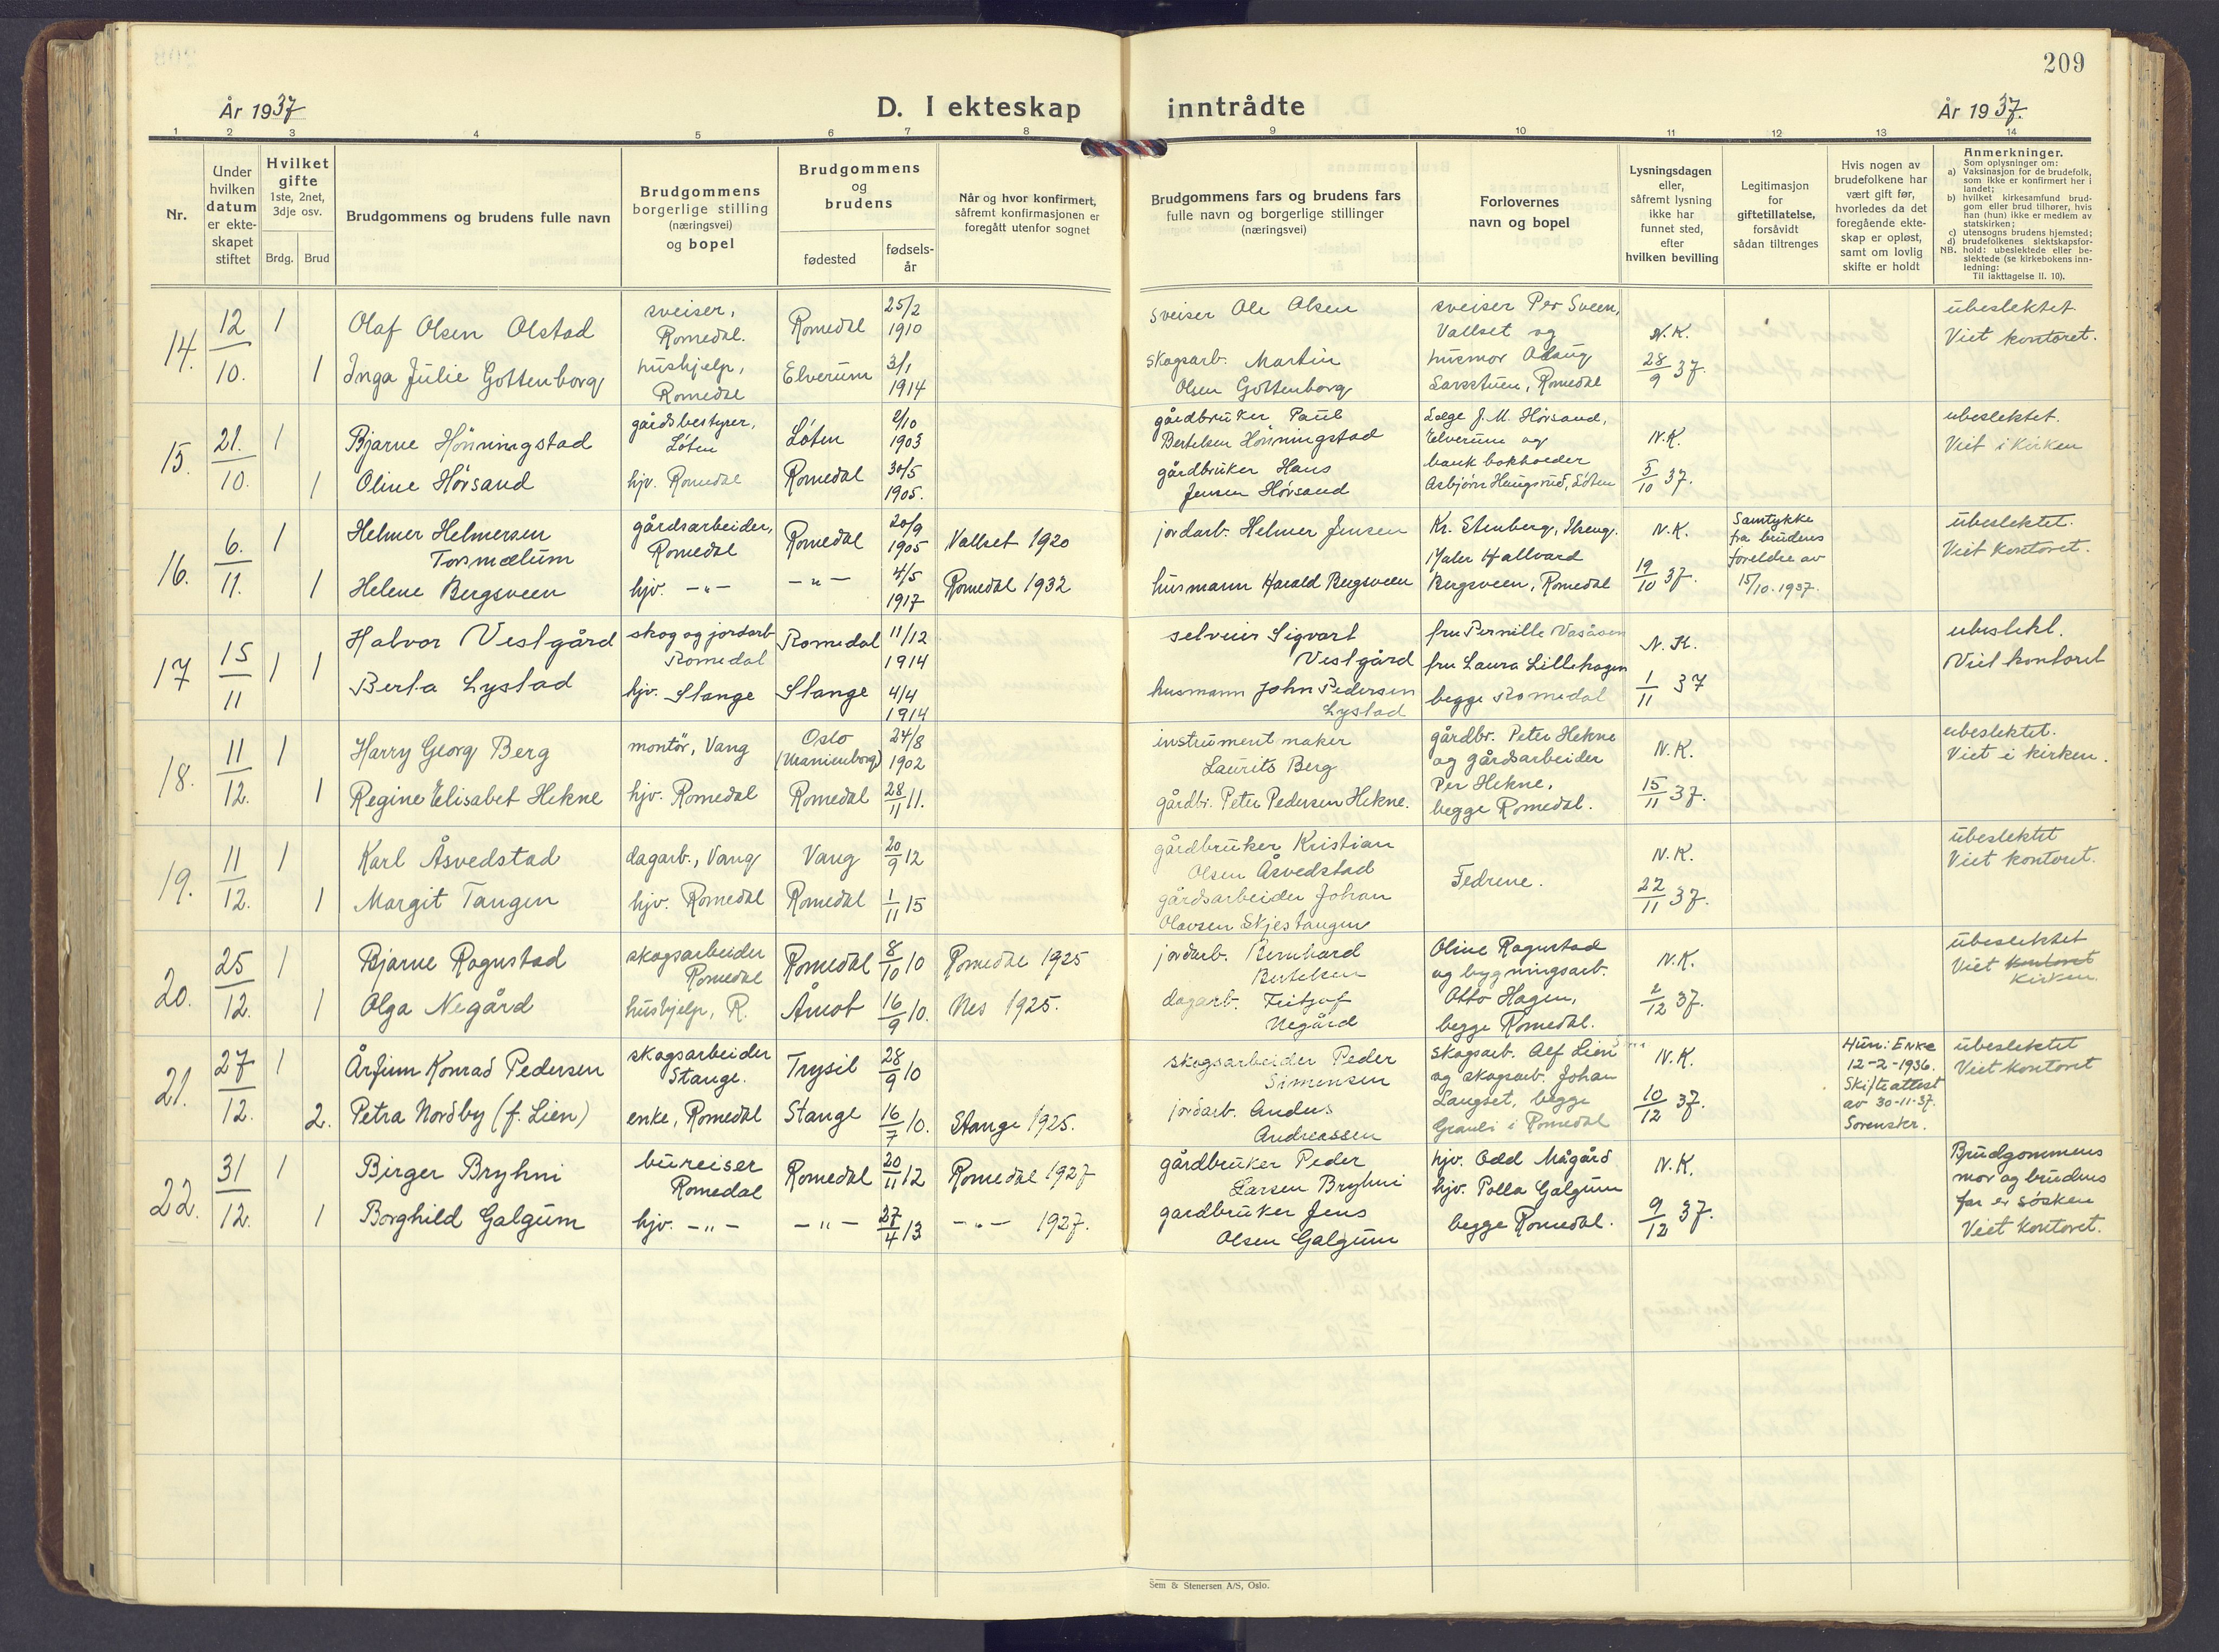 209
År 1937
D. I ekteskap inntrådte
År 1937.
1 2 3 4 5 6 7 8 9 10 11 12 13 14
Nr.
Under hvilken datum er ekteskapet stiftet
Hvilket gifte 1ste, 2net, 3dje osv.
Brdg. Brud
Brudgommens og brudens fulle navn
Brudgommens borgerlige stilling (næringsvei) og bopel
Brudgommens og brudens
fødested
fødselsår
Når og hvor konfirmert, såfremt konfirmasjonen er foregått utenfor sognet
Brudgommens fars og brudens fars fulle navn og borgerlige stillinger (næringsvei)
Forlovernes navn og bopel
Lysningsdagen eller, såfremt lysning ikke har funnet sted, efter hvilken bevilling
Legitimasjon for giftetillatelse, forsåvidt sådan tiltrenges
Hvis nogen av brudefolkene har vært gift før, hvorledes da det foregående ekteskap er opløst, samt om lovlig skifte er holdt
Anmerkninger.
Som oplysninger om:
a) Vaksinasjon for de brudefolk, som ikke er konfirmert her i landet;
b) hvilket kirkesamfund brudgom eller brud tilhører, hvis han (hun) ikke er medlem av statskirken;
c) utensogns brudens hjemsted;
d) brudefolkenes slektskapsforhold: ubeslektede eller beslektede (se kirkebokens innledning:
NB. Til iakttagelse II. 10).
14. 12/10. 1 Olaf Olsen Olstad sveiser, Romedal. Romedal 25/2 1910 sveiser Ole Olsen sveiser Per Sveen, Vallset og N.K. ubeslektet. Viet kontoret.
1 Inga Julie Gottenborg hushjelp, Romedal Elverum 3/1 1914 skogsarb. Martin Olsen Gottenborg husmor Olaug Larsstuen, Romedal 28/9 37.
15. 21./10. 1 Bjarne Hönningstad gårdsbestyrer, Løten Løten 2/10 1903 gårdbruker Paul Bertelsen Hönningstad Læge J. M. Hörsand, Elverum og N.K. ubeslektet. Viet i kirken
1 Oline Hörsand hjv. Romedal Romedal 30/5 1905. gårdbruker Hans Jensen Hörsand bank bokholder Asbjørn Haugsrud, Løten 5/10 37.
16. 6./11. 1 Helmer Helmersen Torsmælum gårdsarbeider, Romedal Romedal 20/9 1905 Vallset 1920 jordarb. Helmer Jensen Kr. Stenberg, Ilseng. N.K. Samtykke fra brudens foreldre av 15/10.1937. ubeslektet. Viet kontoret.
1 Helene Bergsveen hjv. -"- -"- 4/5 1917 Romedal 1932 husmann Harald Bergsveen Maler Hallvard Bergsveen, Romedal 19/10 37.
17 15/11 1 1 Halvor Vestgård skog og jordarb Romedal Romedal 11/12 1914 selveier Sigvart Vestgård fru Pernille Vasåsen N.K. ubeslekt. Viet kontoret
Berta Lystad hjv. Stange Stange 4/4 1914 husmann John Pedersen Lystad fru Laura Lillehagen begge Romedal 1/11 37
18. 11/12. 1 Harry Georg Berg montör, Vang Oslo (Uranienborg) 24/8 1902 instrument maker Laurits Berg gårdbr. Peter Hekne og gårdsarbeider N.K. ubeslektet. Viet i kirken.
1 Regine Elisabet Hekne hjv. Romedal Romedal 28/11 11. gårdbr. Peter Pedersen Hekne. Per Hekne, begge Romedal. 15/11 37.
19. 11/12. 1 Karl Åsvedstad dagarb., Vang Vang 20/9 12 gårdbruker Kristian Olsen Åsvedstad Fedrene. N.K. ubeslektet Viet kontoret.
1 Margit Tangen hjv. Romedal Romedal 1/11 15 gårdsarbeider Johan Olavsen Skjestangen 22/11 37.
20. 25/12. 1 Bjarne Rognstad skogsarbeider Romedal Romedal 8/10 10 Romedal 1925 jordarb. Bernhard Bertelsen Oline Rognstad og bygningsarb. N.K. ubeslektet Viet kontoret kirken.
1 Olga Negård hushjelp, R. Åmot 16/9 10. Nes 1925. dagarb. Fritjof Negård Otto Hagen, begge Romedal. 2/12 37.
21. 27/12. 1 Årfinn Konrad Pedersen skogsarbeider Stange. Trysil 28/9 10 skogsarbeider Peder Simensen Skogsarb. Alf Lien og skogsarb. Johan N.K. Hun: Enke 12-2-1936. Skifteattest av 30-11-37. Sorenskr. ubeslektet Viet kontoret
2. Petra Nordby (f. Lien) enke, Romedal Stange 16/7 10. Stange 1925. jordarb. Anders Andreassen Langset, begge i Romedal 10/12 37.
22. 31/12. 1 Birger Bryhni bureiser Romedal Romedal 20/11 12 Romedal 1927 gårdbruker Peder Larsen Bryhni hjv. Odd Mågård N.K. Brudgommens mor og brudens far er søsken Viet kontoret.
1 Borghild Galgum hjv. -"- -"- 27/4 13 -"- 1927. gardbruker Jens Olsen Galgum hjv. Polla Galgum begge Romedal. 9/12 37.
Sem & Stenersen A/S, Oslo.